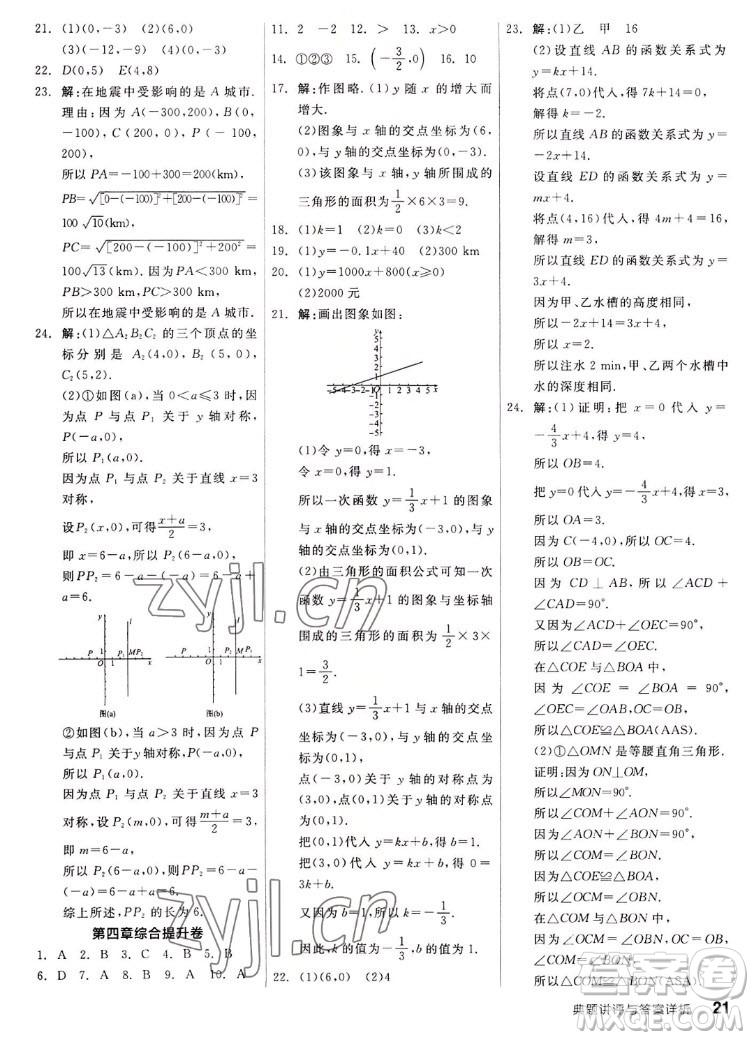 21. (1)(0,-3) (2)(6,0)
(3)(-12,-9) (4)(0,-3)
22. D(0,5) E(4,8)
23. 解:在地震中受影响的是 A 城市.
理由:因为 A(-300,200),B(0,
-100),C(200,0),P(-100,
200),
所以 PA=-100+300=200(km),
PB=√([0-(-100)]²+[200-(-100)]²)=
100√10(km),
PC=√([200-(-100)]²+200²)=
100√13(km). 因为 PA<300 km,
PB>300 km,PC>300 km,
所以在地震中受影响的是 A 城市.
24. 解:(1)△A₂B₂C₂ 的三个顶点的坐
标分别是 A₂(4,0),B₂(5,0),
C₂(5,2).
(2)①如图(a),当 0<a≤3 时,因
为点 P 与点 P₁ 关于 y 轴对称,
P(-a,0),
所以 P₁(a,0).
因为点 P₁ 与点 P₂ 关于直线 x=3
对称,
设P₂(x,0),可得(x+a)/2=3,
即 x=6-a,所以 P₂(6-a,0),
则PP₂=6-a-(-a)=6-a
+a=6.
y l
P 1 O 1 P₁ MP₂ x
图(a)
y l
P 1 O 1 P₂ M P₁ x
图(b)
②如图(b),当 a>3 时,因为点 P
与点 P₁ 关于 y 轴对称,P(-a,0),
所以 P₁(a,0).
因为点 P₁ 与点 P₂ 关于直线 x=3
对称,设 P₂(m,0),可得(m+a)/2=3,
即 m=6-a,
所以 P₂(6-a,0),所以 PP₂=6
-a-(-a)=6.
综上所述,PP₂ 的长为 6.
第四章综合提升卷
1. A 2. B 3. C 4. B 5. B
6. D 7. A 8. B 9. A 10. A
11. 2 12. -2 13. x>0
14. ①②③ 15. (-3/2,0) 16. 10
17. 解:作图略. (1) y 随 x 的增大而
增大.
(2)图象与 x 轴的交点坐标为(6,
0),与 y 轴的交点坐标为(0,-3).
(3)该图象与 x 轴,y 轴所围成的
三角形的面积为1/2×6×3=9.
18. (1)k=1 (2)k=0 (3)k<2
19. (1)y=-0.1x+40 (2)300 km
20. (1)y=1000x+800(x≥0)
(2)2000 元
21. 解:画出图象如图:
y
5
4
3
2
1
-5-4-3-2-1 O 1 2 3 4 5 x
-1
-2
-3
-4
-5
(1)令 y=0,得 x=-3,
令 x=0,得 y=1,
所以一次函数 y=1/3x+1 的图象
与 x 轴的交点坐标为(-3,0),与
y 轴的交点坐标为(0,1).
(2)由三角形的面积公式可知一次
函数 y=1/3x+1 的图象与坐标轴
围成的三角形的面积为1/2×3×
1=3/2.
(3)直线 y=1/3x+1 与 x 轴的交点
坐标为(-3,0),与 y 轴的交点坐
标为(0,1),
点(-3,0)关于 y 轴的对称点为
(3,0),点(0,1)关于 y 轴的对称点
为(0,1).
把(0,1)代入 y=kx+b,得 b=1.
把(3,0)代入 y=kx+b,得 0=
3k+b.
又因为 b=1,所以 k=-1/3.
因此,k 的值为-1/3,b 的值为 1.
22. (1)(6,0) (2)4
23. 解:(1)乙 甲 16
(2)设直线 AB 的函数关系式为
y=kx+14,
将点(7,0)代入,得 7k+14=0,
解得 k=-2.
所以直线 AB 的函数关系式为 y=
-2x+14.
设直线 ED 的函数关系式为 y=
mx+4,
将点(4,16)代入,得 4m+4=16,
解得 m=3.
所以直线 ED 的函数关系式为 y=
3x+4.
因为甲、乙水槽的高度相同,
所以-2x+14=3x+4,
所以 x=2,
所以注水 2 min,甲、乙两个水槽中
水的深度相同.
24. 解:(1)证明:把 x=0 代入 y=
-4/3x+4,得 y=4,
所以 OB=4.
把 y=0代入 y=-4/3x+4,得 x=3,
所以 OA=3.
因为 C(-4,0),所以 OC=4.
所以 OB=OC.
因为 CD⊥AB,所以∠ACD+
∠CAD=90°.
又因为∠ACD+∠OEC=90°,
所以∠CAD=∠OEC.
在△COE 与△BOA 中,
因为∠COE=∠BOA=90°,
∠OEC=∠OAB,OC=OB,
所以△COE≌△BOA(AAS).
(2)①△OMN 是等腰直角三角形.
证明:因为 ON⊥OM,
所以∠MON=90°,
所以∠COM+∠AON=90°.
因为∠BON+∠AON=90°,
所以∠COM=∠BON.
因为△COE≌△BOA,
所以∠OCM=∠OBN.
在△COM 与△BON 中,
因为∠OCM=∠OBN,OC=OB,
∠COM=∠BON,
所以△COM≌△BON(ASA),
典题讲评与答案详析 21
zyjl.cn
zyjl.cn
答案圈